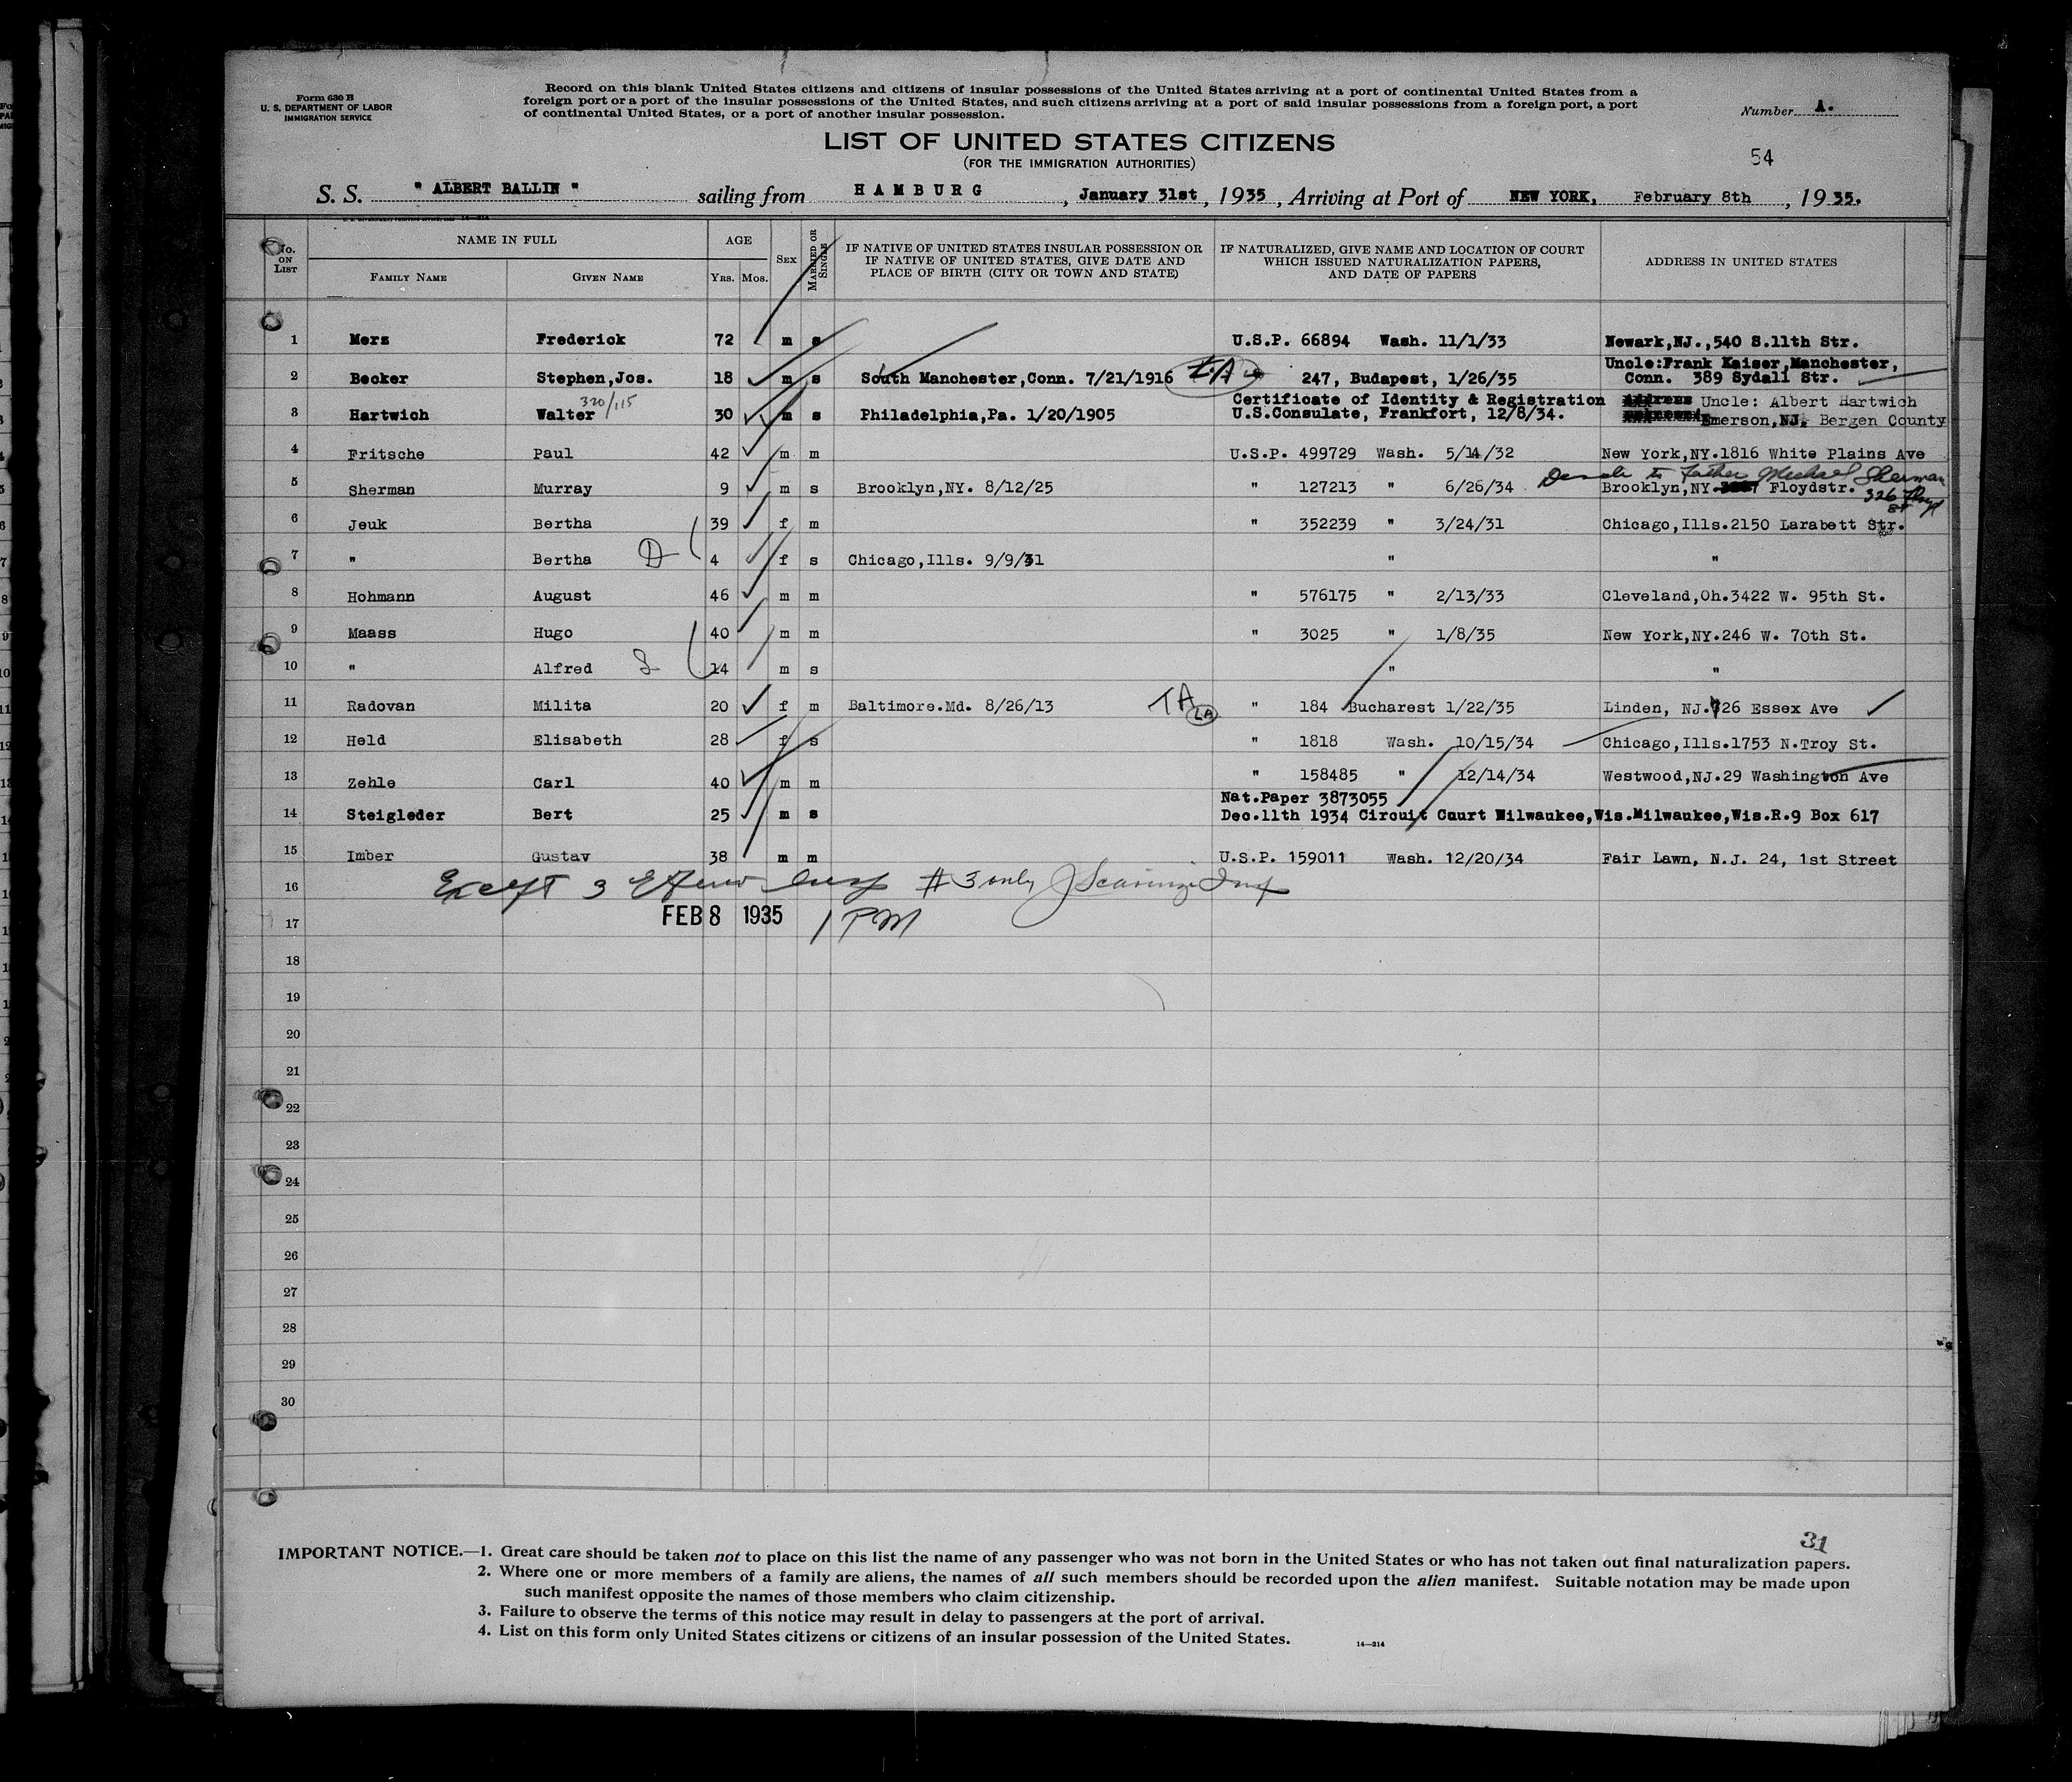 Form 630 B
U. S. DEPARTMENT OF LABOR
IMMIGRATION SERVICE
Record on this blank United States citizens and citizens of insular possessions of the United States arriving at a port of continental United States from a
foreign port or a port of the insular possessions of the United States, and such citizens arriving at a port of said insular possessions from a foreign port, a port
of continental United States, or a port of another insular possession.
Number A.
LIST OF UNITED STATES CITIZENS
(FOR THE IMMIGRATION AUTHORITIES)
54
S. S. " ALBERT BALLIN " sailing from HAMBURG, January 31st, 1935, Arriving at Port of NEW YORK, February 8th, 1935.
No. ON LIST NAME IN FULL AGE SEX MARRIED OR SINGLE IF NATIVE OF UNITED STATES INSULAR POSSESSION OR IF NATIVE OF UNITED STATES, GIVE DATE AND PLACE OF BIRTH (CITY OR TOWN AND STATE) IF NATURALIZED, GIVE NAME AND LOCATION OF COURT WHICH ISSUED NATURALIZATION PAPERS, AND DATE OF PAPERS ADDRESS IN UNITED STATES
FAMILY NAME GIVEN NAME YRS. MOS.
1 Merz Frederick 72 m s U.S.P. 66894 Wash. 11/1/33 Newark,NJ.,540 S.11th Str.
Uncle:Frank Kaiser,Manchester,
2 Becker Stephen,Jos. 18 m s South Manchester,Conn. 7/21/1916 247, Budapest, 1/26/35 Conn. 389 Sydall Str.
320/115
Certificate of Identity & Registration Uncle: Albert Hartwich
3 Hartwich Walter 30 m s Philadelphia,Pa. 1/20/1905 U.S.Consulate, Frankfort, 12/8/34. Emerson,NJ. Bergen County
4 Fritsche Paul 42 m m U.S.P. 499729 Wash. 5/14/32 New York,NY.1816 White Plains Ave
to Father Michael Sherman
5 Sherman Murray 9 m s Brooklyn,NY. 8/12/25 " 127213 " 6/26/34 Brooklyn,NY. Floydstr. 326 Floyd St
6 Jeuk Bertha 39 f m " 352239 " 3/24/31 Chicago,Ills.2150 Larabett Str.
7 " Bertha D 4 f s Chicago,Ills. 9/9/31 " "
8 Hohmann August 46 m m " 576175 " 2/13/33 Cleveland,Oh.3422 W. 95th St.
9 Maass Hugo 40 m m " 3025 " 1/8/35 New York,NY.246 W. 70th St.
10 " Alfred S 14 m s " "
11 Radovan Milita 20 f m Baltimore.Md. 8/26/13 TA LA " 184 Bucharest 1/22/35 Linden, NJ. 26 Essex Ave
12 Held Elisabeth 28 f s " 1818 Wash. 10/15/34 Chicago,Ills.1753 N.Troy St.
13 Zehle Carl 40 m m " 158485 " 12/14/34 Westwood,NJ.29 Washington Ave
Nat.Paper 3873055
14 Steigleder Bert 25 m s Dec.11th 1934 Circuit Court Milwaukee,Wis.Milwaukee,Wis.R.9 Box 617
15 Imber Gustav 38 m m U.S.P. 159011 Wash. 12/20/34 Fair Lawn, N.J. 24, 1st Street
16 Except 3 #3 only
17 FEB 8 1935 1 PM
18
19
20
21
22
23
24
25
26
27
28
29
30
31
IMPORTANT NOTICE.—1. Great care should be taken not to place on this list the name of any passenger who was not born in the United States or who has not taken out final naturalization papers.
2. Where one or more members of a family are aliens, the names of all such members should be recorded upon the alien manifest. Suitable notation may be made upon
such manifest opposite the names of those members who claim citizenship.
3. Failure to observe the terms of this notice may result in delay to passengers at the port of arrival.
4. List on this form only United States citizens or citizens of an insular possession of the United States.
14—214